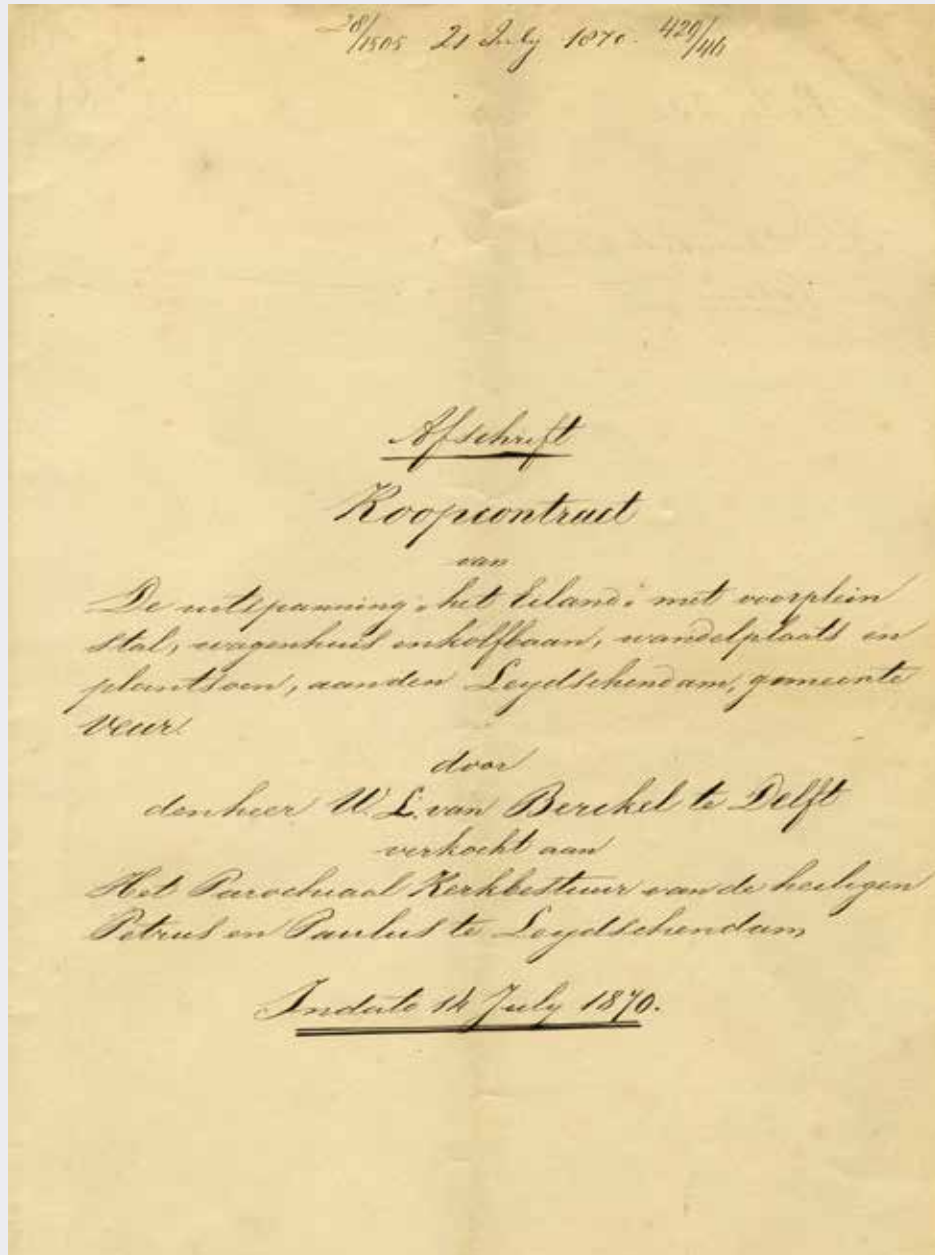 28/1505 21 July 1870. 420/46
Afschrift
Koopcontract
van
De uitspanning „het Eiland" met voorplein
stal, wagenhuis enkolfbaan, wandelplaats en
plantsoen, aanden Leydschendam, gemeente
Veur.
door
denheer W. L. van Berckel te Delft
verkocht aan
Het Parochiaal Kerkbestuur van de heiligen
Petrus en Paulus te Leydschendam,
Indato 14 July 1870.